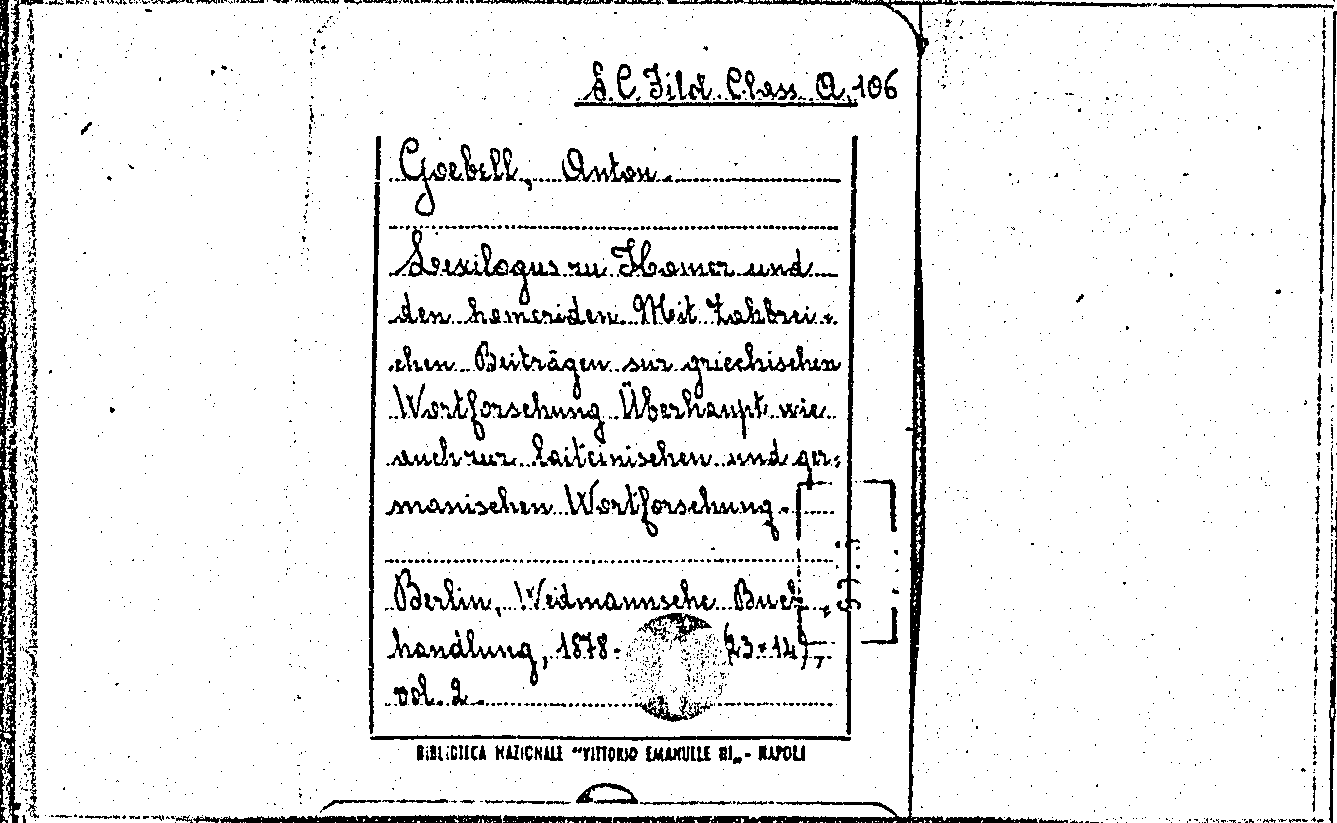 S. C. Filol. Class. A. 106
Goebell, Anton.
Lexilogus zu Homer und
den homeriden Mit Zahlrei-
chen Beiträgen zur griechischen
Wortforschung Überhaupt wie
auch zur laiteinischen und ger-
manischen Wortforschung.
Berlin, Weidmannsche Buch
handlung, 1878. (23×14)
vol. 2.
BIBLIOTECA NAZIONALE "VITTORIO EMANUELE III" - NAPOLI